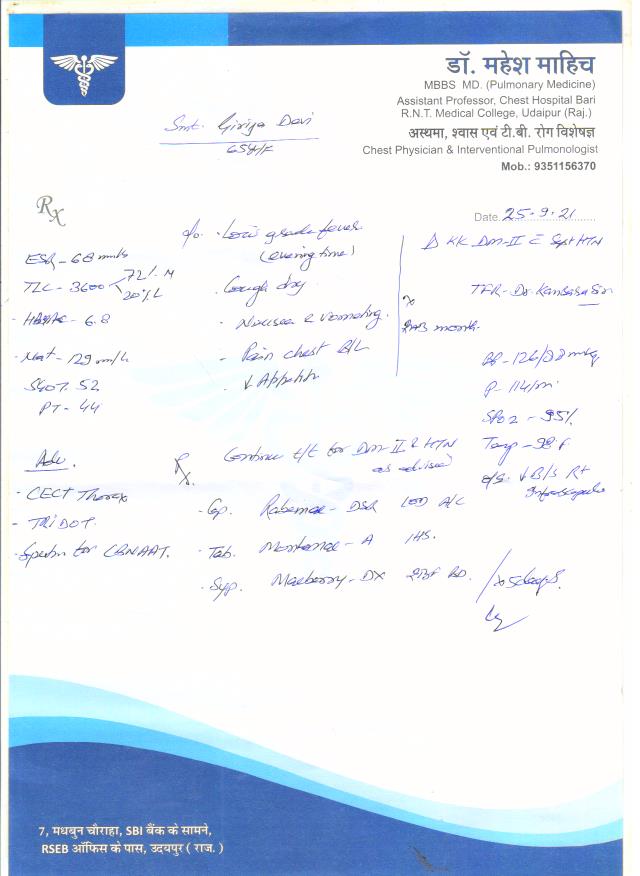 डॉ. महेश माहिच
MBBS MD. (Pulmonary Medicine)
Assistant Professor, Chest Hospital Bari
R.N.T. Medical College, Udaipur (Raj.)
अस्थमा, श्वास एवं टी.बी. रोग विशेषज्ञ
Chest Physician & Interventional Pulmonologist
Mob.: 9351156370
Smt. Girija Devi
65y/F
Rx
Date. 25.9.21
ESR - 68 mmhs
TLC - 3600 72%. N
20%L
- 6.8
- 129 m/l
SGOT. 52
PT - 44
c/o. Low grade fever
(evening time)
. Cough dry
- Nausea & vomiting.
- Pain chest B/L
- ↓ Appetite
KC DM-II c HTN
TFR - Dr.
month.
BP - 126/88 mmHg
P - 114/m
SPO2 - 95%
Temp - 98 F
↓ B/S Rt
Adv.
- CECT Thorax
- TRIDOT.
- Sputum for CBNAAT.
Rx.
Continue t/t for DM-II & HTN
as advised
- Cap. DSR 1 OD A/C
- Tab. - A 1HS.
- Syp. - DX BD.
x 5days.
7, मधबुन चौराहा, SBI बैंक के सामने,
RSEB ऑफिस के पास, उदयपुर ( राज. )